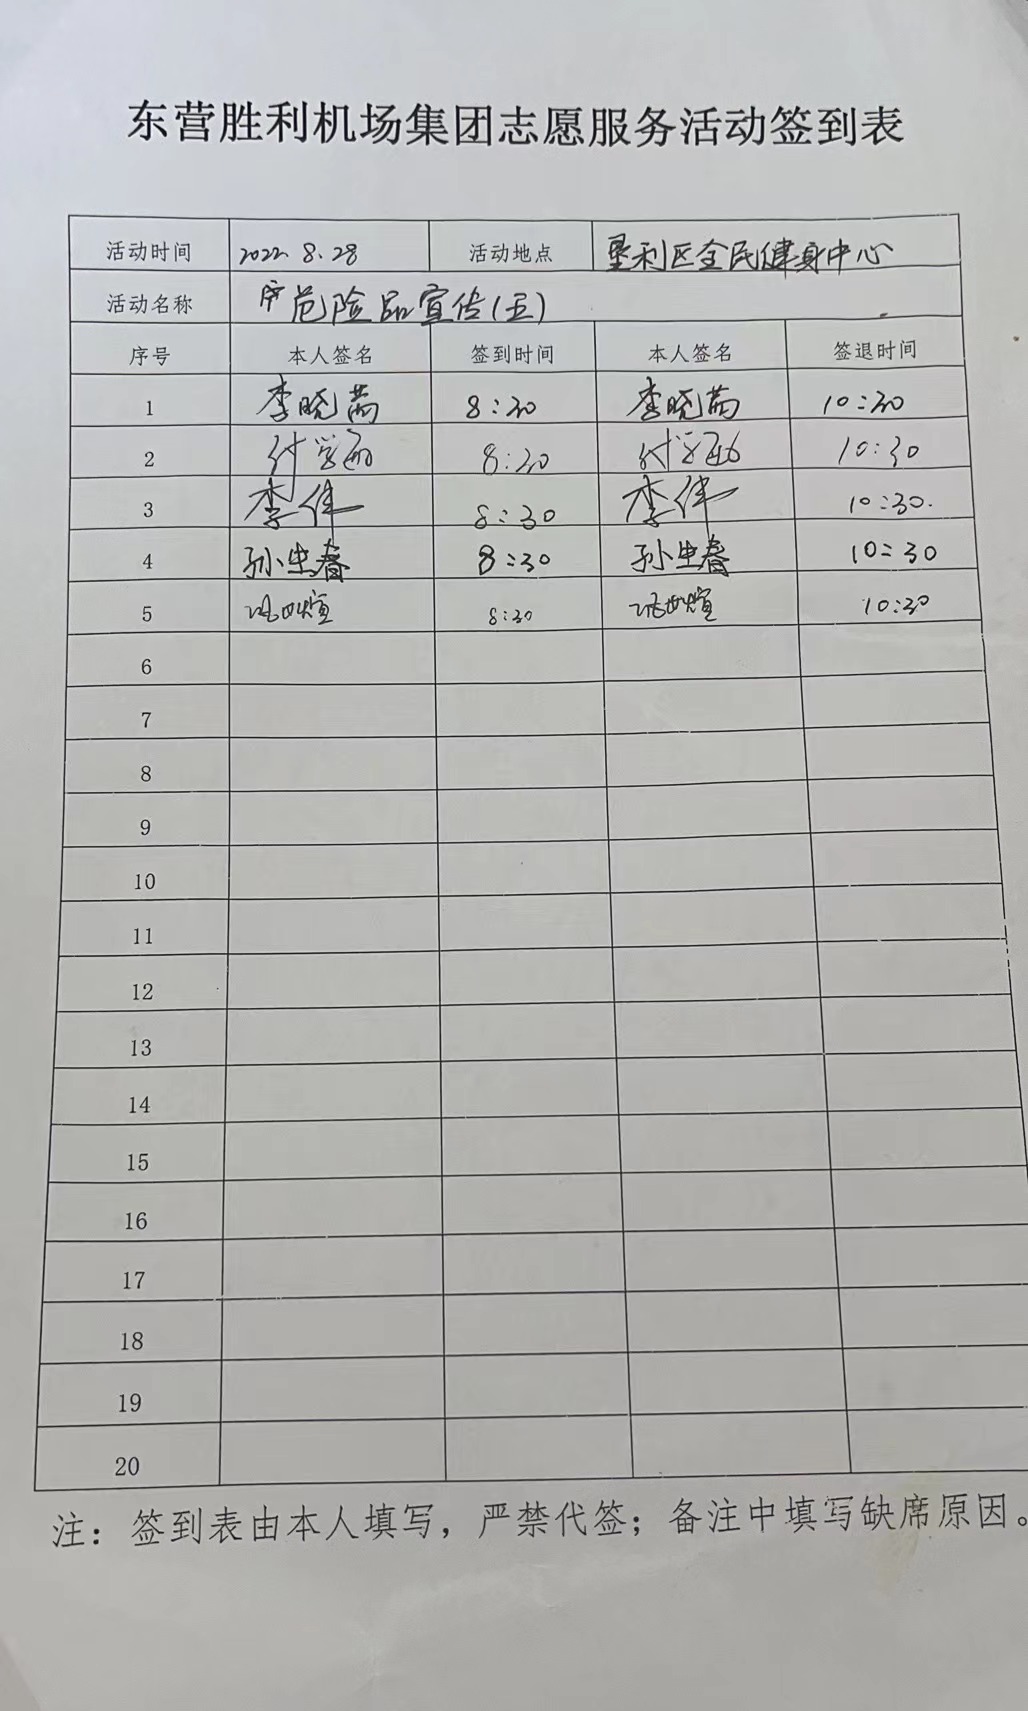 东营胜利机场集团志愿服务活动签到表
活动时间 2022.8.28 活动地点 垦利区全民健身中心
活动名称 危险品宣传(五)
序号 本人签名 签到时间 本人签名 签退时间
1 李晓茜 8:30 李晓茜 10:30
2 付学 8:30 付学 10:30
3 李伟 8:30 李伟 10:30.
4 孙忠春 8:30 孙忠春 10:30
5 8:30 10:30
6
7
8
9
10
11
12
13
14
15
16
17
18
19
20
注：签到表由本人填写，严禁代签；备注中填写缺席原因。